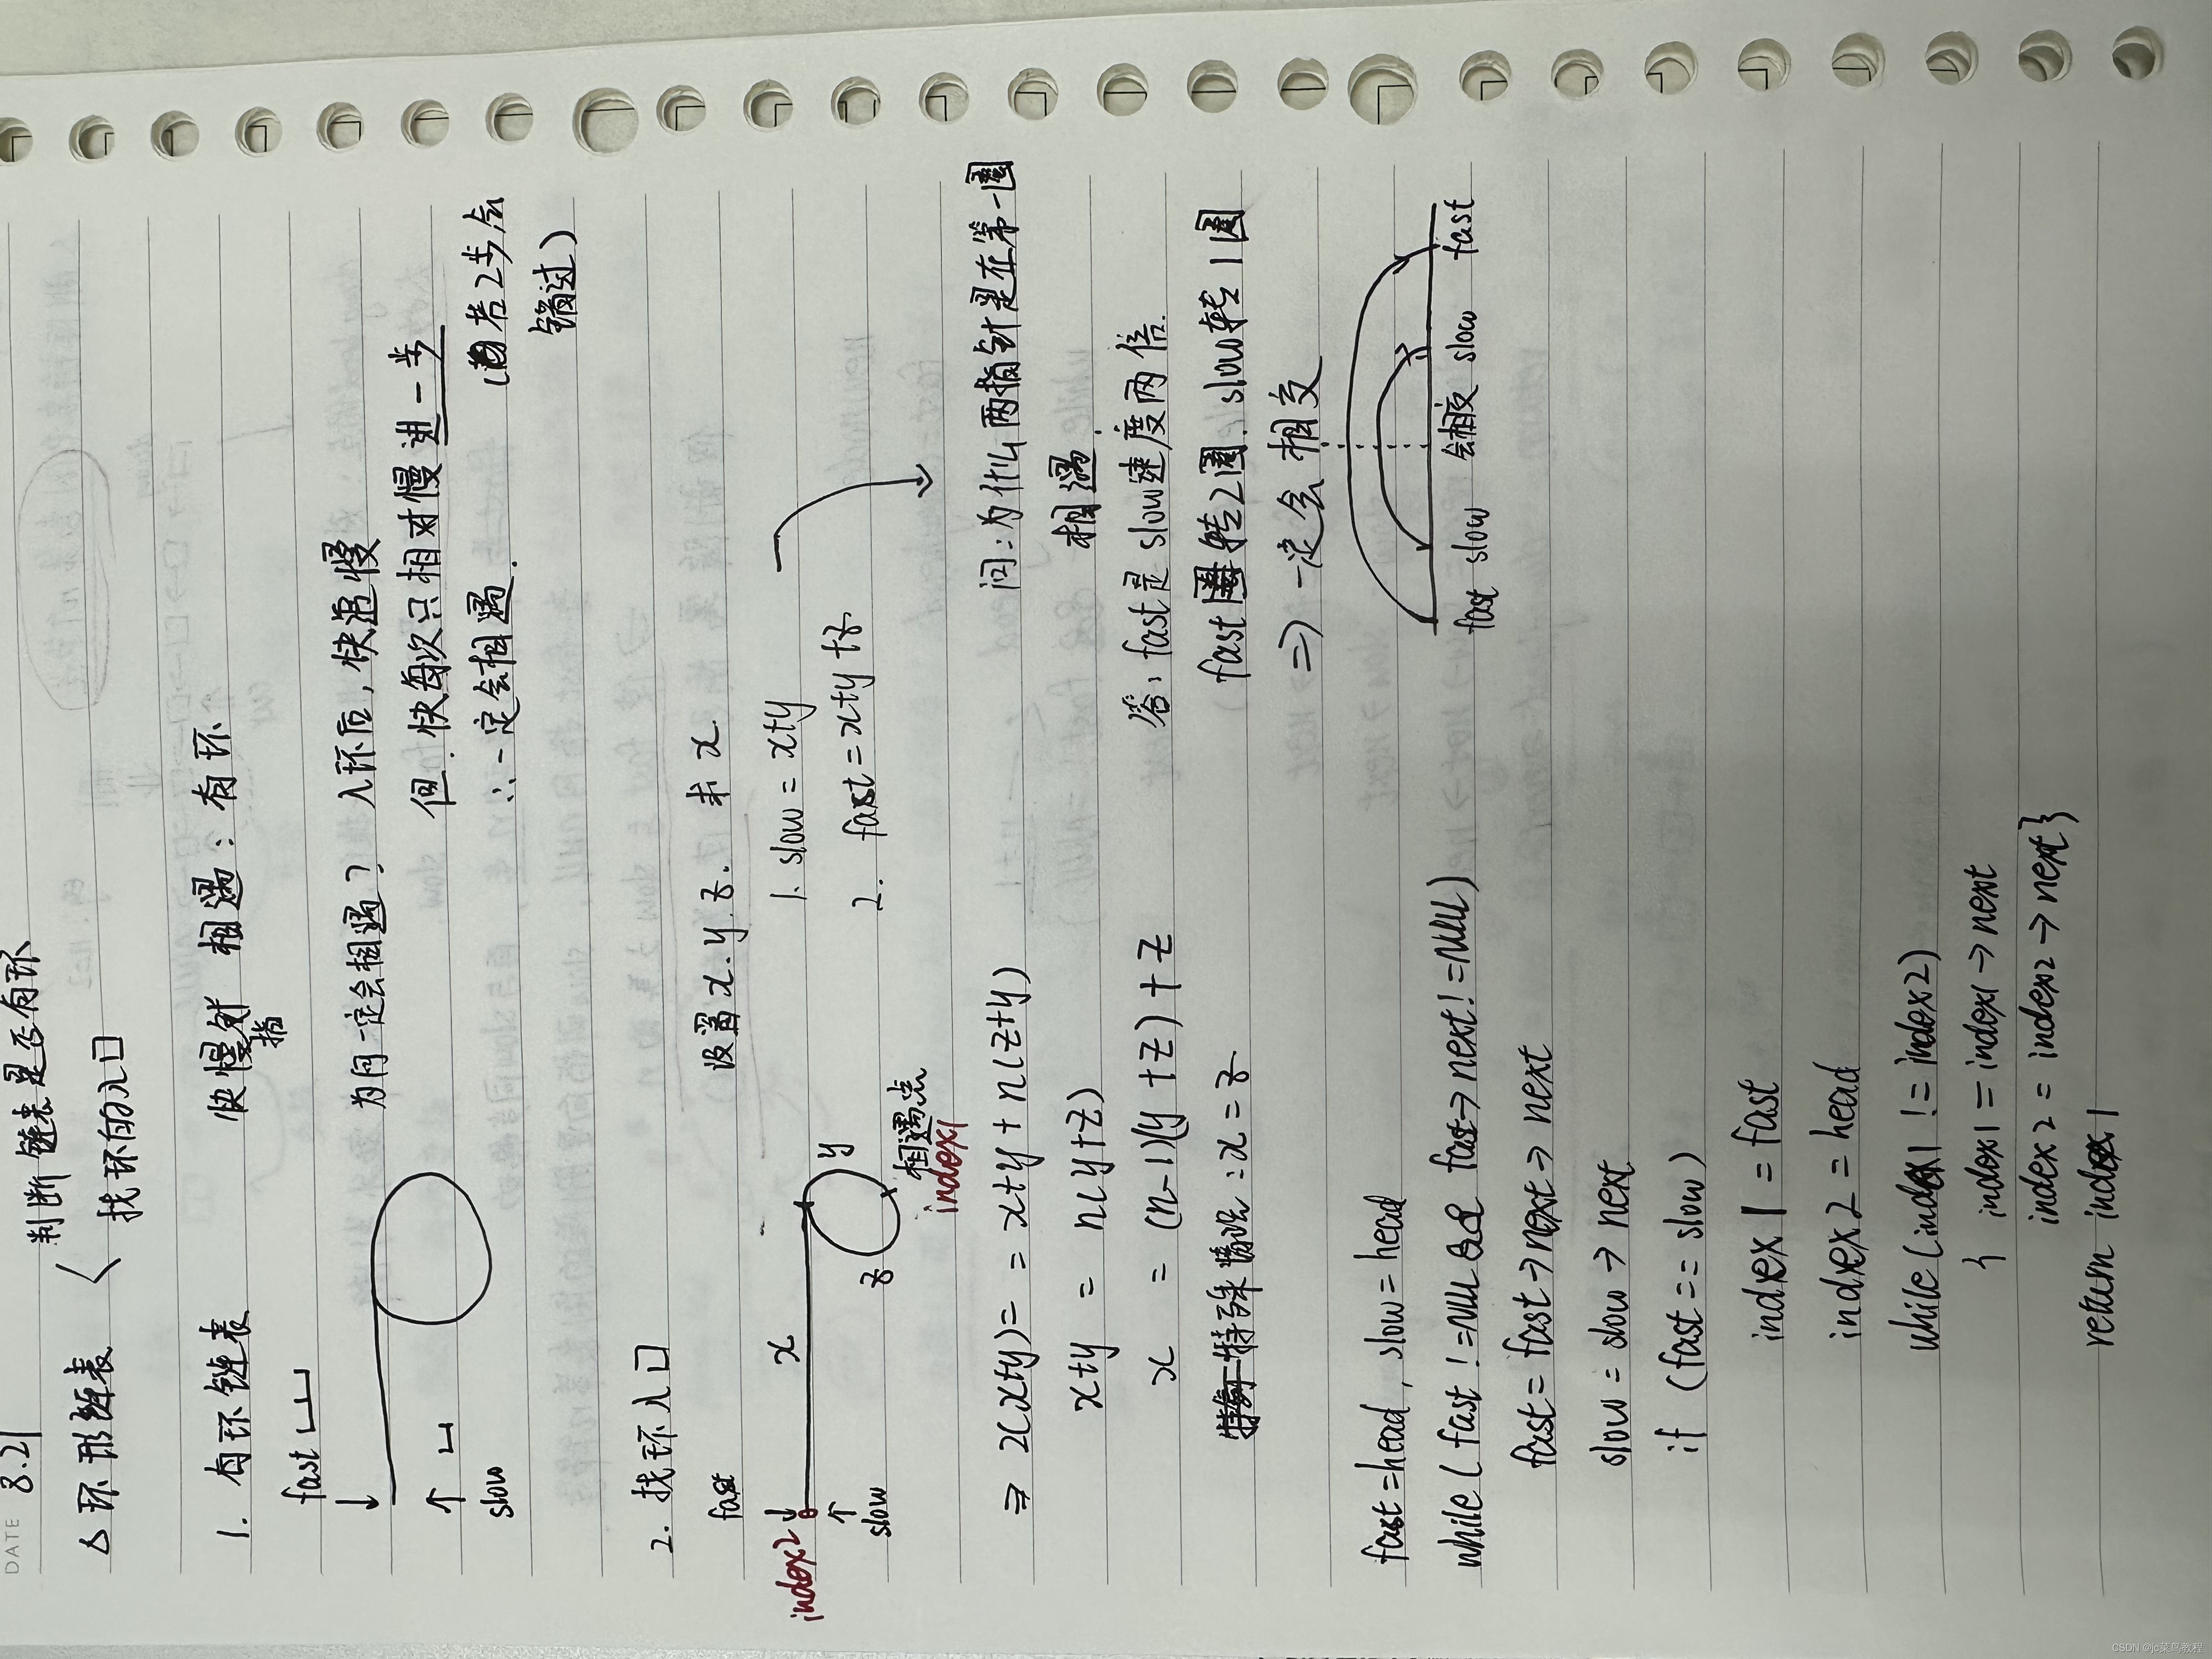 DATE 8.21
△环形链表 〈 判断链表是否有环
找环的入口
1. 有环链表 快慢指针 相遇：有环
fast
slow
为何一定会相遇？ 入环后，快追慢
但，快每次只相对慢进一步
∴一定会相遇.
(若2步会
错过)
2. 找环入口
设置x.y.z. 求x
fast
slow
index2
x
y
z
相遇点
index1
1. slow = x+y
2. fast = x+y+z.
⇒ 2(x+y) = x+y + n(z+y)
x+y = n(y+z)
x = (n-1)(y+z)+z
特殊情况：x=z
问：为什么两指针是在第一圈
相遇.
答：fast是slow速度两倍.
fast转2圈. slow转1圈
⇒一定会相交
fast slow 会相交 slow fast
fast=head, slow=head
while (fast !=NULL && fast→next!=NULL)
fast=fast→next→next
slow=slow→next
if (fast==slow)
index1=fast
index2=head
while (index1 != index2)
{ index1=index1→next
index2=index2→next}
return index1
CSDN @jc菜鸟教程